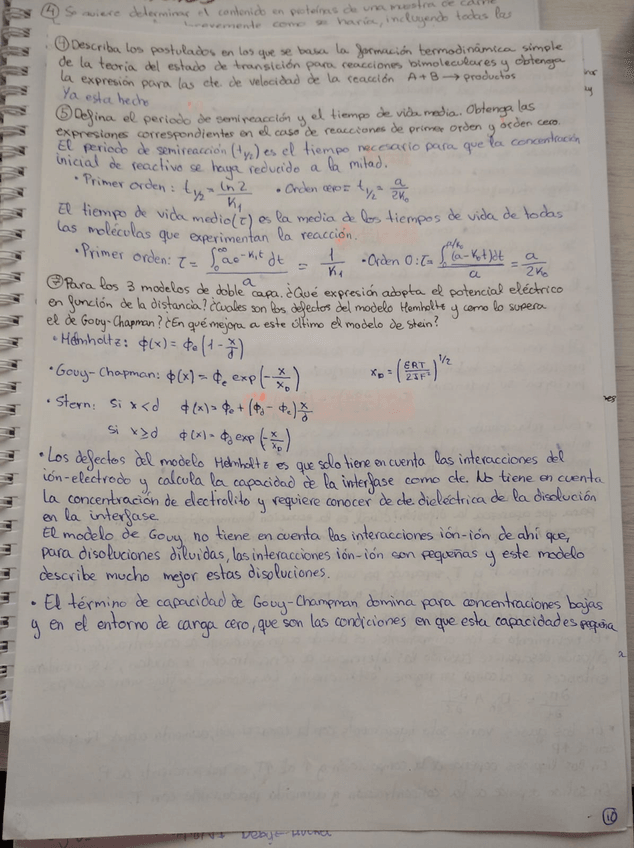 ④ Se quiere determinar el contenido en proteínas de una muestra de carne
brevemente como se haría, incluyendo todas las
① Describa los postulados en los que se basa la formación termodinámica simple
de la teoría del estado de transición para reacciones bimoleculares y obtenga
la expresión para las cte de velocidad de la reacción A + B → productos
Ya esta hecho
⑤ Defina el periodo de semireacción y el tiempo de vida media. Obtenga las
expresiones correspondientes en el caso de reacciones de primer orden y orden cero.
El periodo de semireacción (t1/2) es el tiempo necesario para que la concentración
inicial de reactivo se haya reducido a la mitad.
• Primer orden: t1/2 = ln 2 / K1 • Orden cero = t1/2 = a / 2K0
El tiempo de vida medio (τ) es la media de los tiempos de vida de todas
las moléculas que experimentan la reacción.
• Primer orden: τ = ∫0^∞ a e^-K1t dt / a = 1 / K1 • Orden 0: τ = ∫0^a/K0 (a-K0t)dt / a = a / 2K0
⑦ Para los 3 modelos de doble capa. ¿Qué expresión adopta el potencial eléctrico
en función de la distancia? ¿Cuales son los defectos del modelo Hemholtz y como lo supera
el de Gouy-Chapman? ¿En qué mejora a este último el modelo de Stein?
• Helmholtz: ϕ(x) = ϕe (1 - x/d)
• Gouy-Chapman: ϕ(x) = ϕe exp(-x/xD) xD = (εRT / 2IF²)^1/2
• Stern: si x<d ϕ(x) = ϕe + (ϕd - ϕe) x/d
si x≥d ϕ(x) = ϕd exp(-x/xD)
• Los defectos del modelo Helmholtz es que solo tiene en cuenta las interacciones del
ión-electrodo y calcula la capacidad de la interfase como cte. No tiene en cuenta
la concentración de electrolito y requiere conocer de cte dieléctrica de la disolución
en la interfase
El modelo de Gouy no tiene en cuenta las interacciones ión-ión de ahí que,
para disoluciones diluidas, las interacciones ión-ión son pequeñas y este modelo
describe mucho mejor estas disoluciones.
• El término de capacidad de Gouy-Champman domina para concentraciones bajas
y en el entorno de carga cero, que son las condiciones en que esta capacidad es pequeña
10